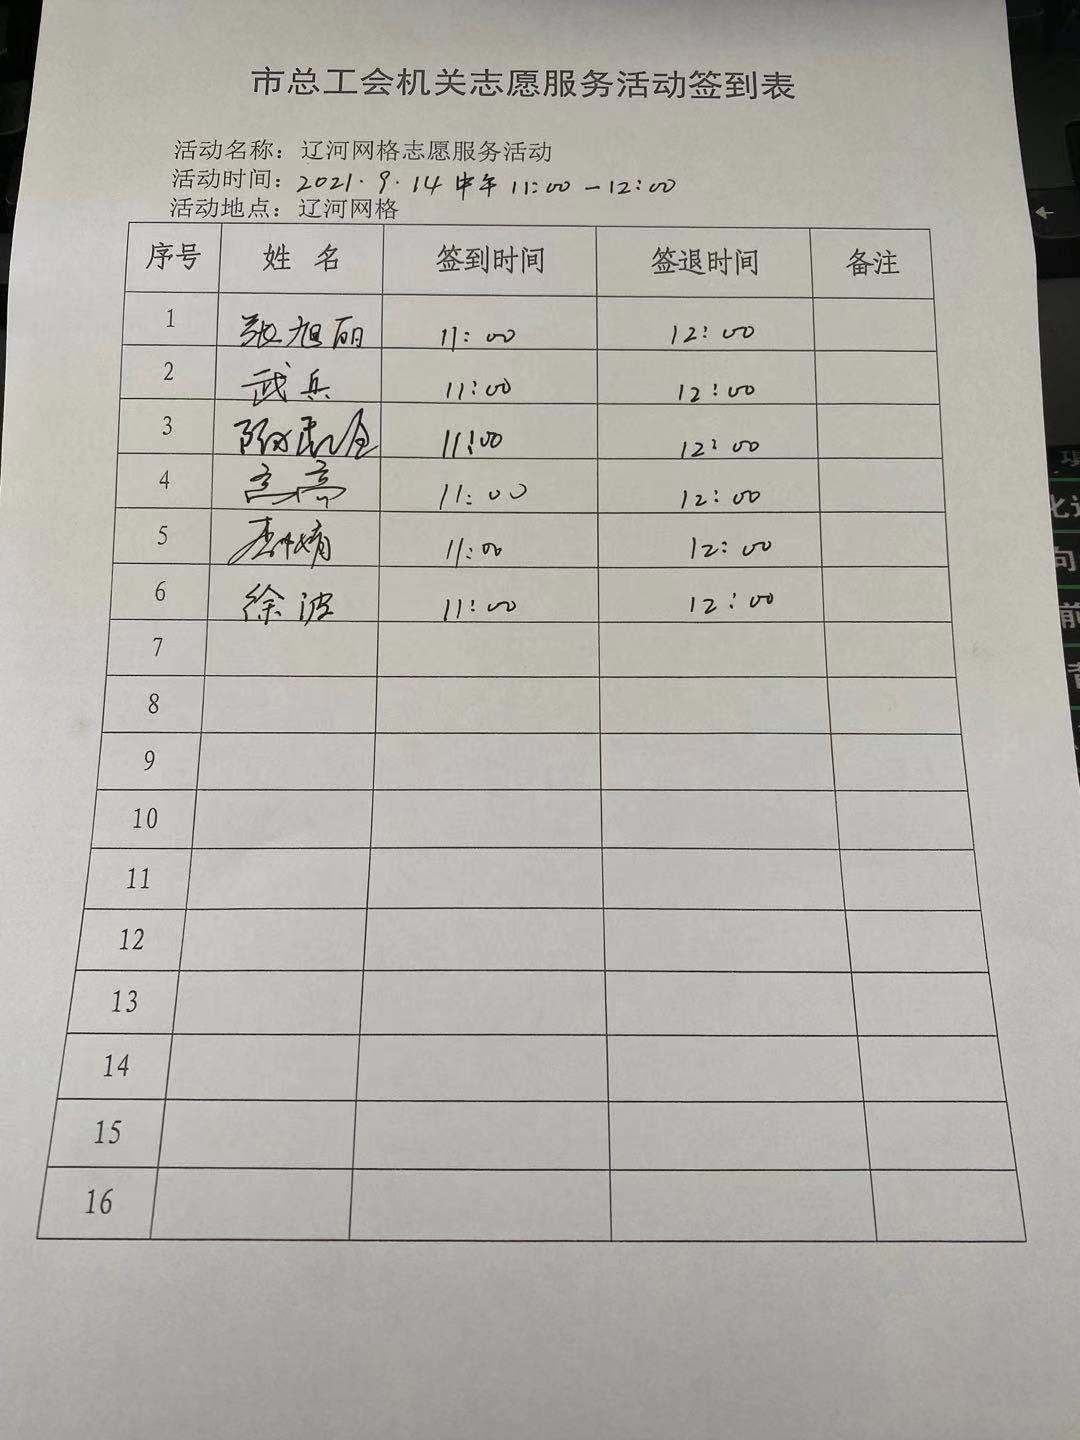 市总工会机关志愿服务活动签到表
活动名称：辽河网格志愿服务活动
活动时间：2021.9.14 中午 11:00—12:00
活动地点：辽河网格
序号 姓 名 签到时间 签退时间 备注
1 张旭丽 11:00 12:00
2 武兵 11:00 12:00
3 11:00 12:00
4 高亮 11:00 12:00
5 11:00 12:00
6 徐波 11:00 12:00
7
8
9
10
11
12
13
14
15
16
向
前